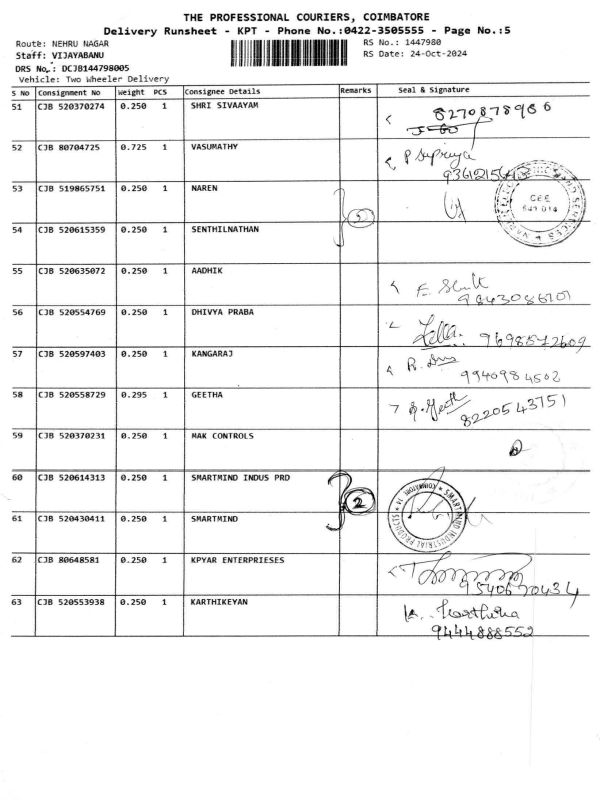 THE PROFESSIONAL COURIERS, COIMBATORE
Delivery Runsheet - KPT - Phone No.:0422-3505555 - Page No.:5
Route: NEHRU NAGAR
RS No.: 1447980
Staff: VIJAYABANU
RS Date: 24-Oct-2024
DRS No.: DCJB144798005
Vehicle: Two Wheeler Delivery
S No Consignment No Weight PCS Consignee Details Remarks Seal & Signature
51 CJB 520370274 0.250 1 SHRI SIVAAYAM 8270878986
52 CJB 80704725 0.725 1 VASUMATHY P Supriya
53 CJB 519865751 0.250 1 NAREN
54 CJB 520615359 0.250 1 SENTHILNATHAN
55 CJB 520635072 0.250 1 AADHIK
56 CJB 520554769 0.250 1 DHIVYA PRABA
57 CJB 520597403 0.250 1 KANGARAJ 9940984502
58 CJB 520558729 0.295 1 GEETHA 8220543751
59 CJB 520370231 0.250 1 MAK CONTROLS
60 CJB 520614313 0.250 1 SMARTMIND INDUS PRD 2
SMARTMIND INDUSTRIAL PRODUCTS
61 CJB 520430411 0.250 1 SMARTMIND
62 CJB 80648581 0.250 1 KPYAR ENTERPRIESES
63 CJB 520553938 0.250 1 KARTHIKEYAN
9444888552